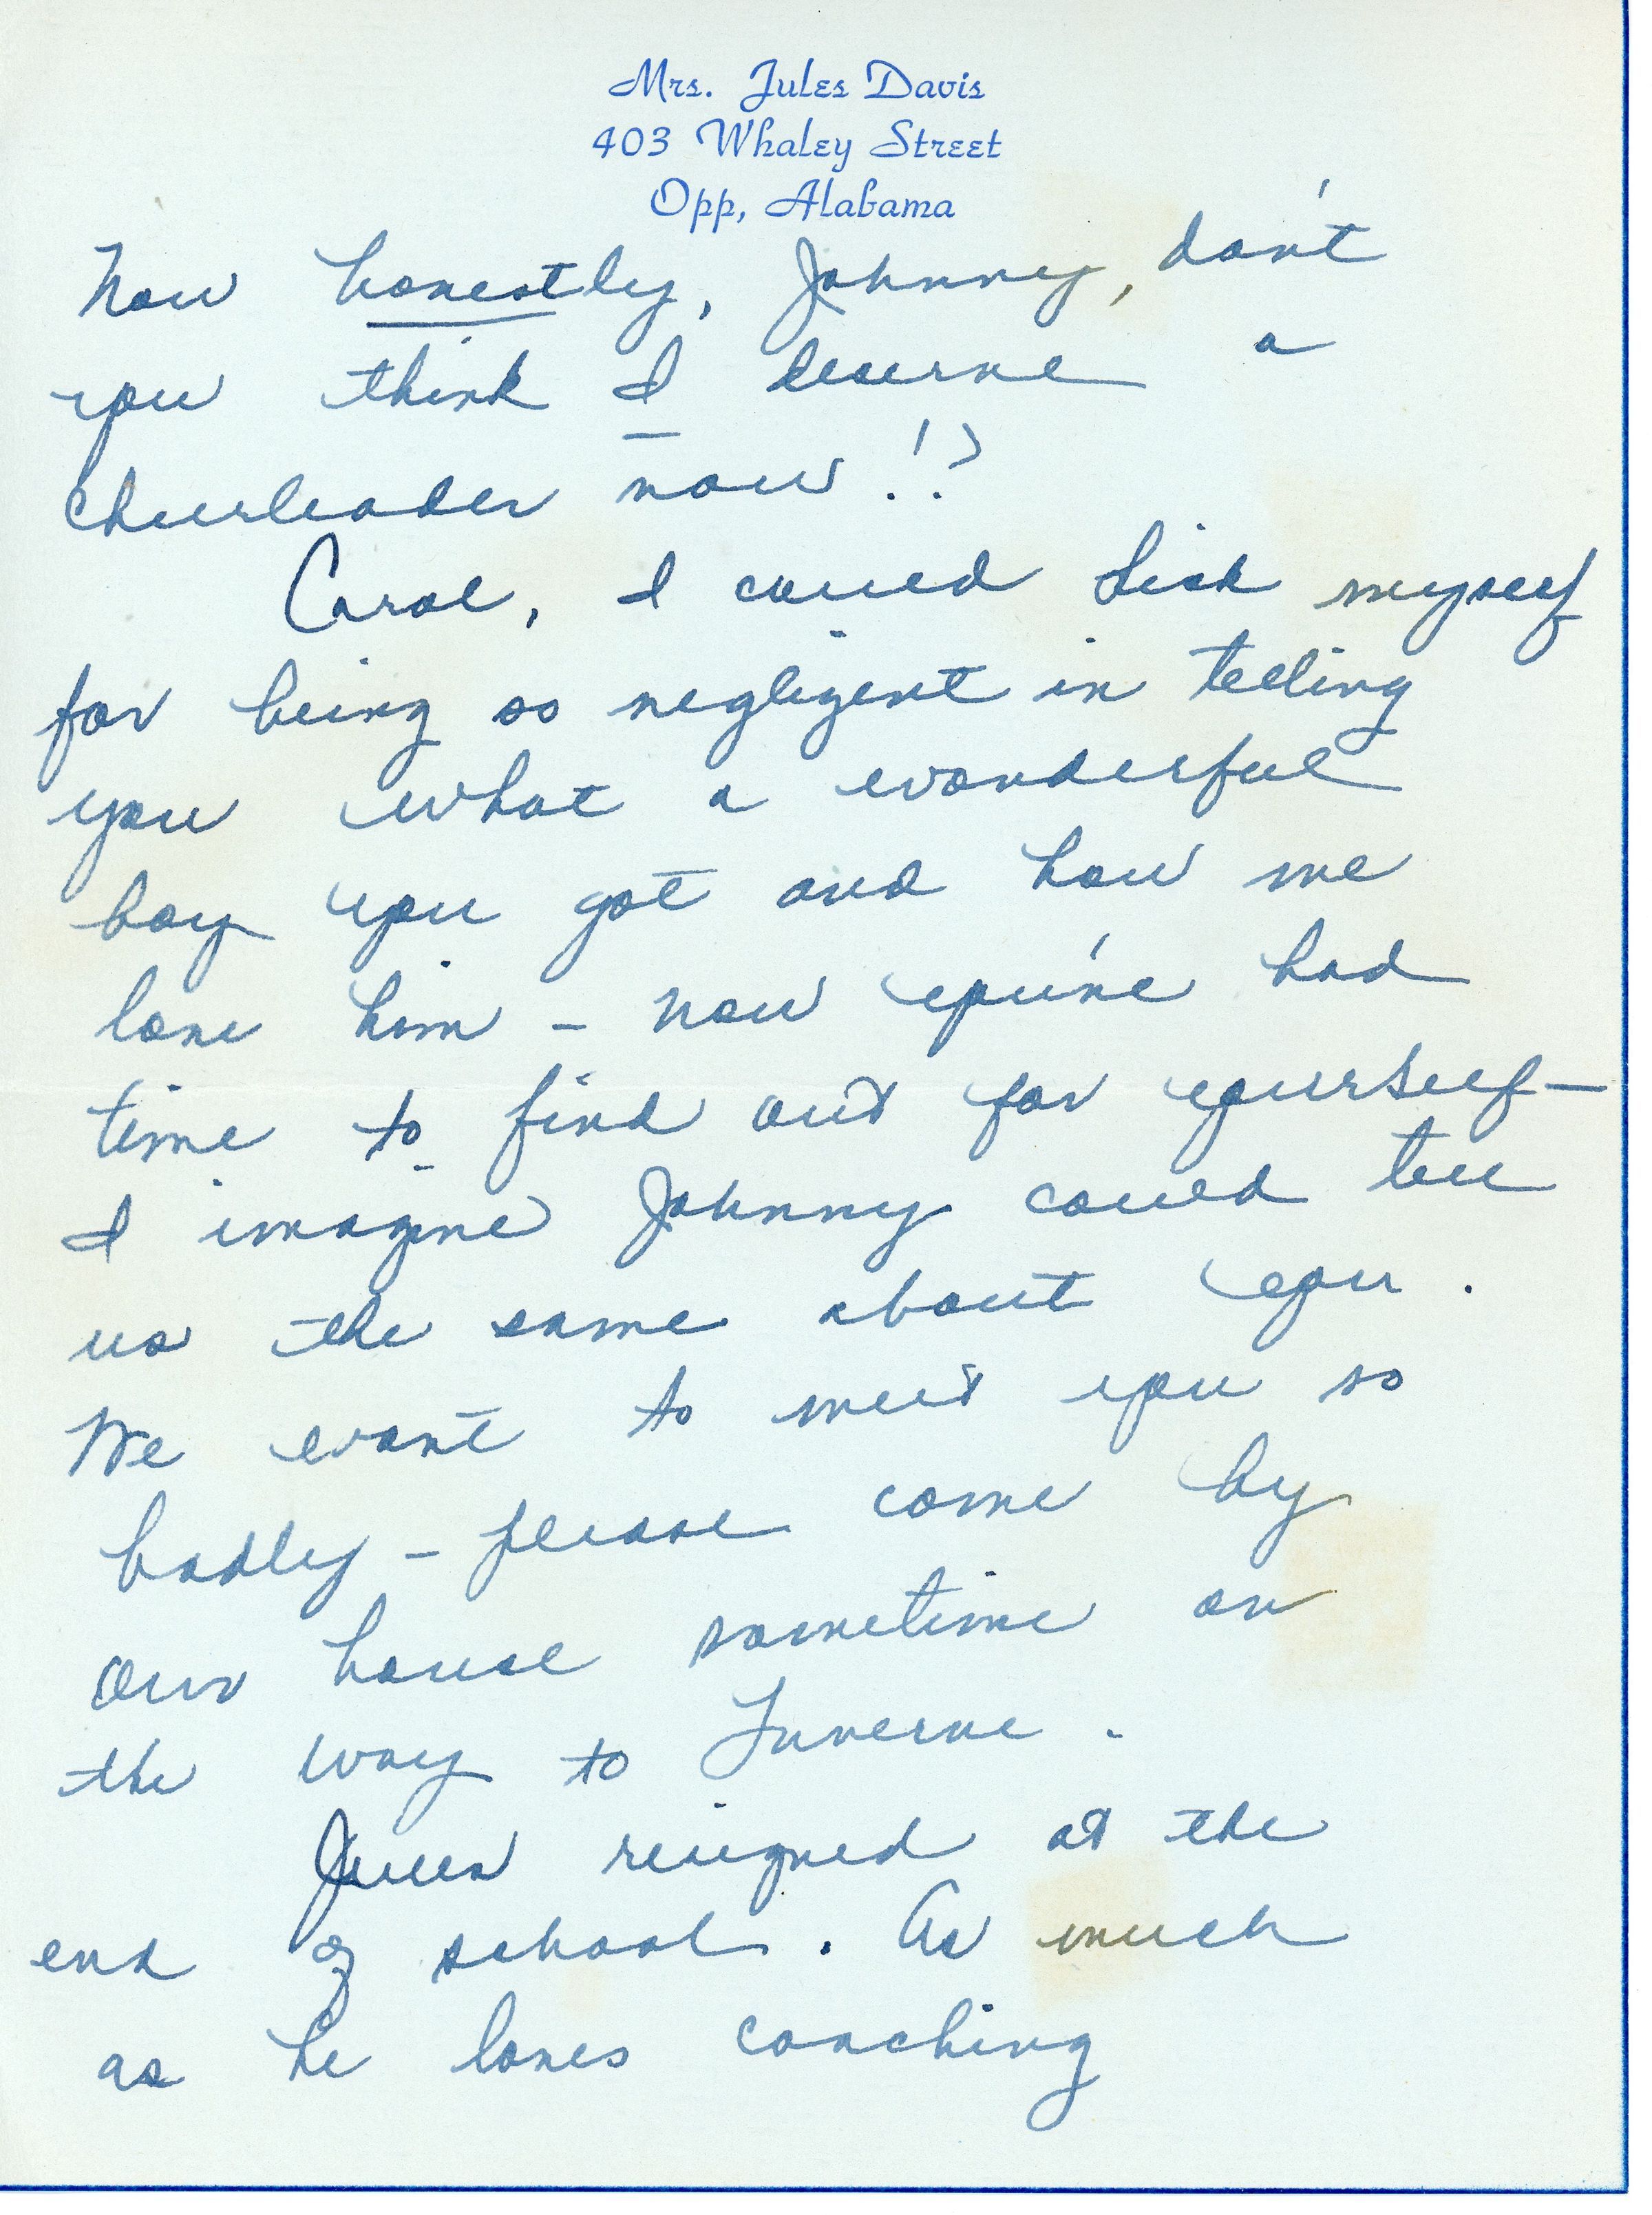 Mrs. Jules Davis
403 Whaley Street
Opp, Alabama
Now honestly, Johnny, don't
you think I deserve a
cheerleader now!?
Carol, I could kick myself
for being so negligent in telling
you what a wonderful
boy you got and how we
love him - now you've had
time to find out for yourself —
I imagine Johnny could tell
us the same about you.
We want to meet you so
badly - please come by
our house sometime on
the way to Luverne.
Jules resigned at the
end of school. As much
as he loves coaching